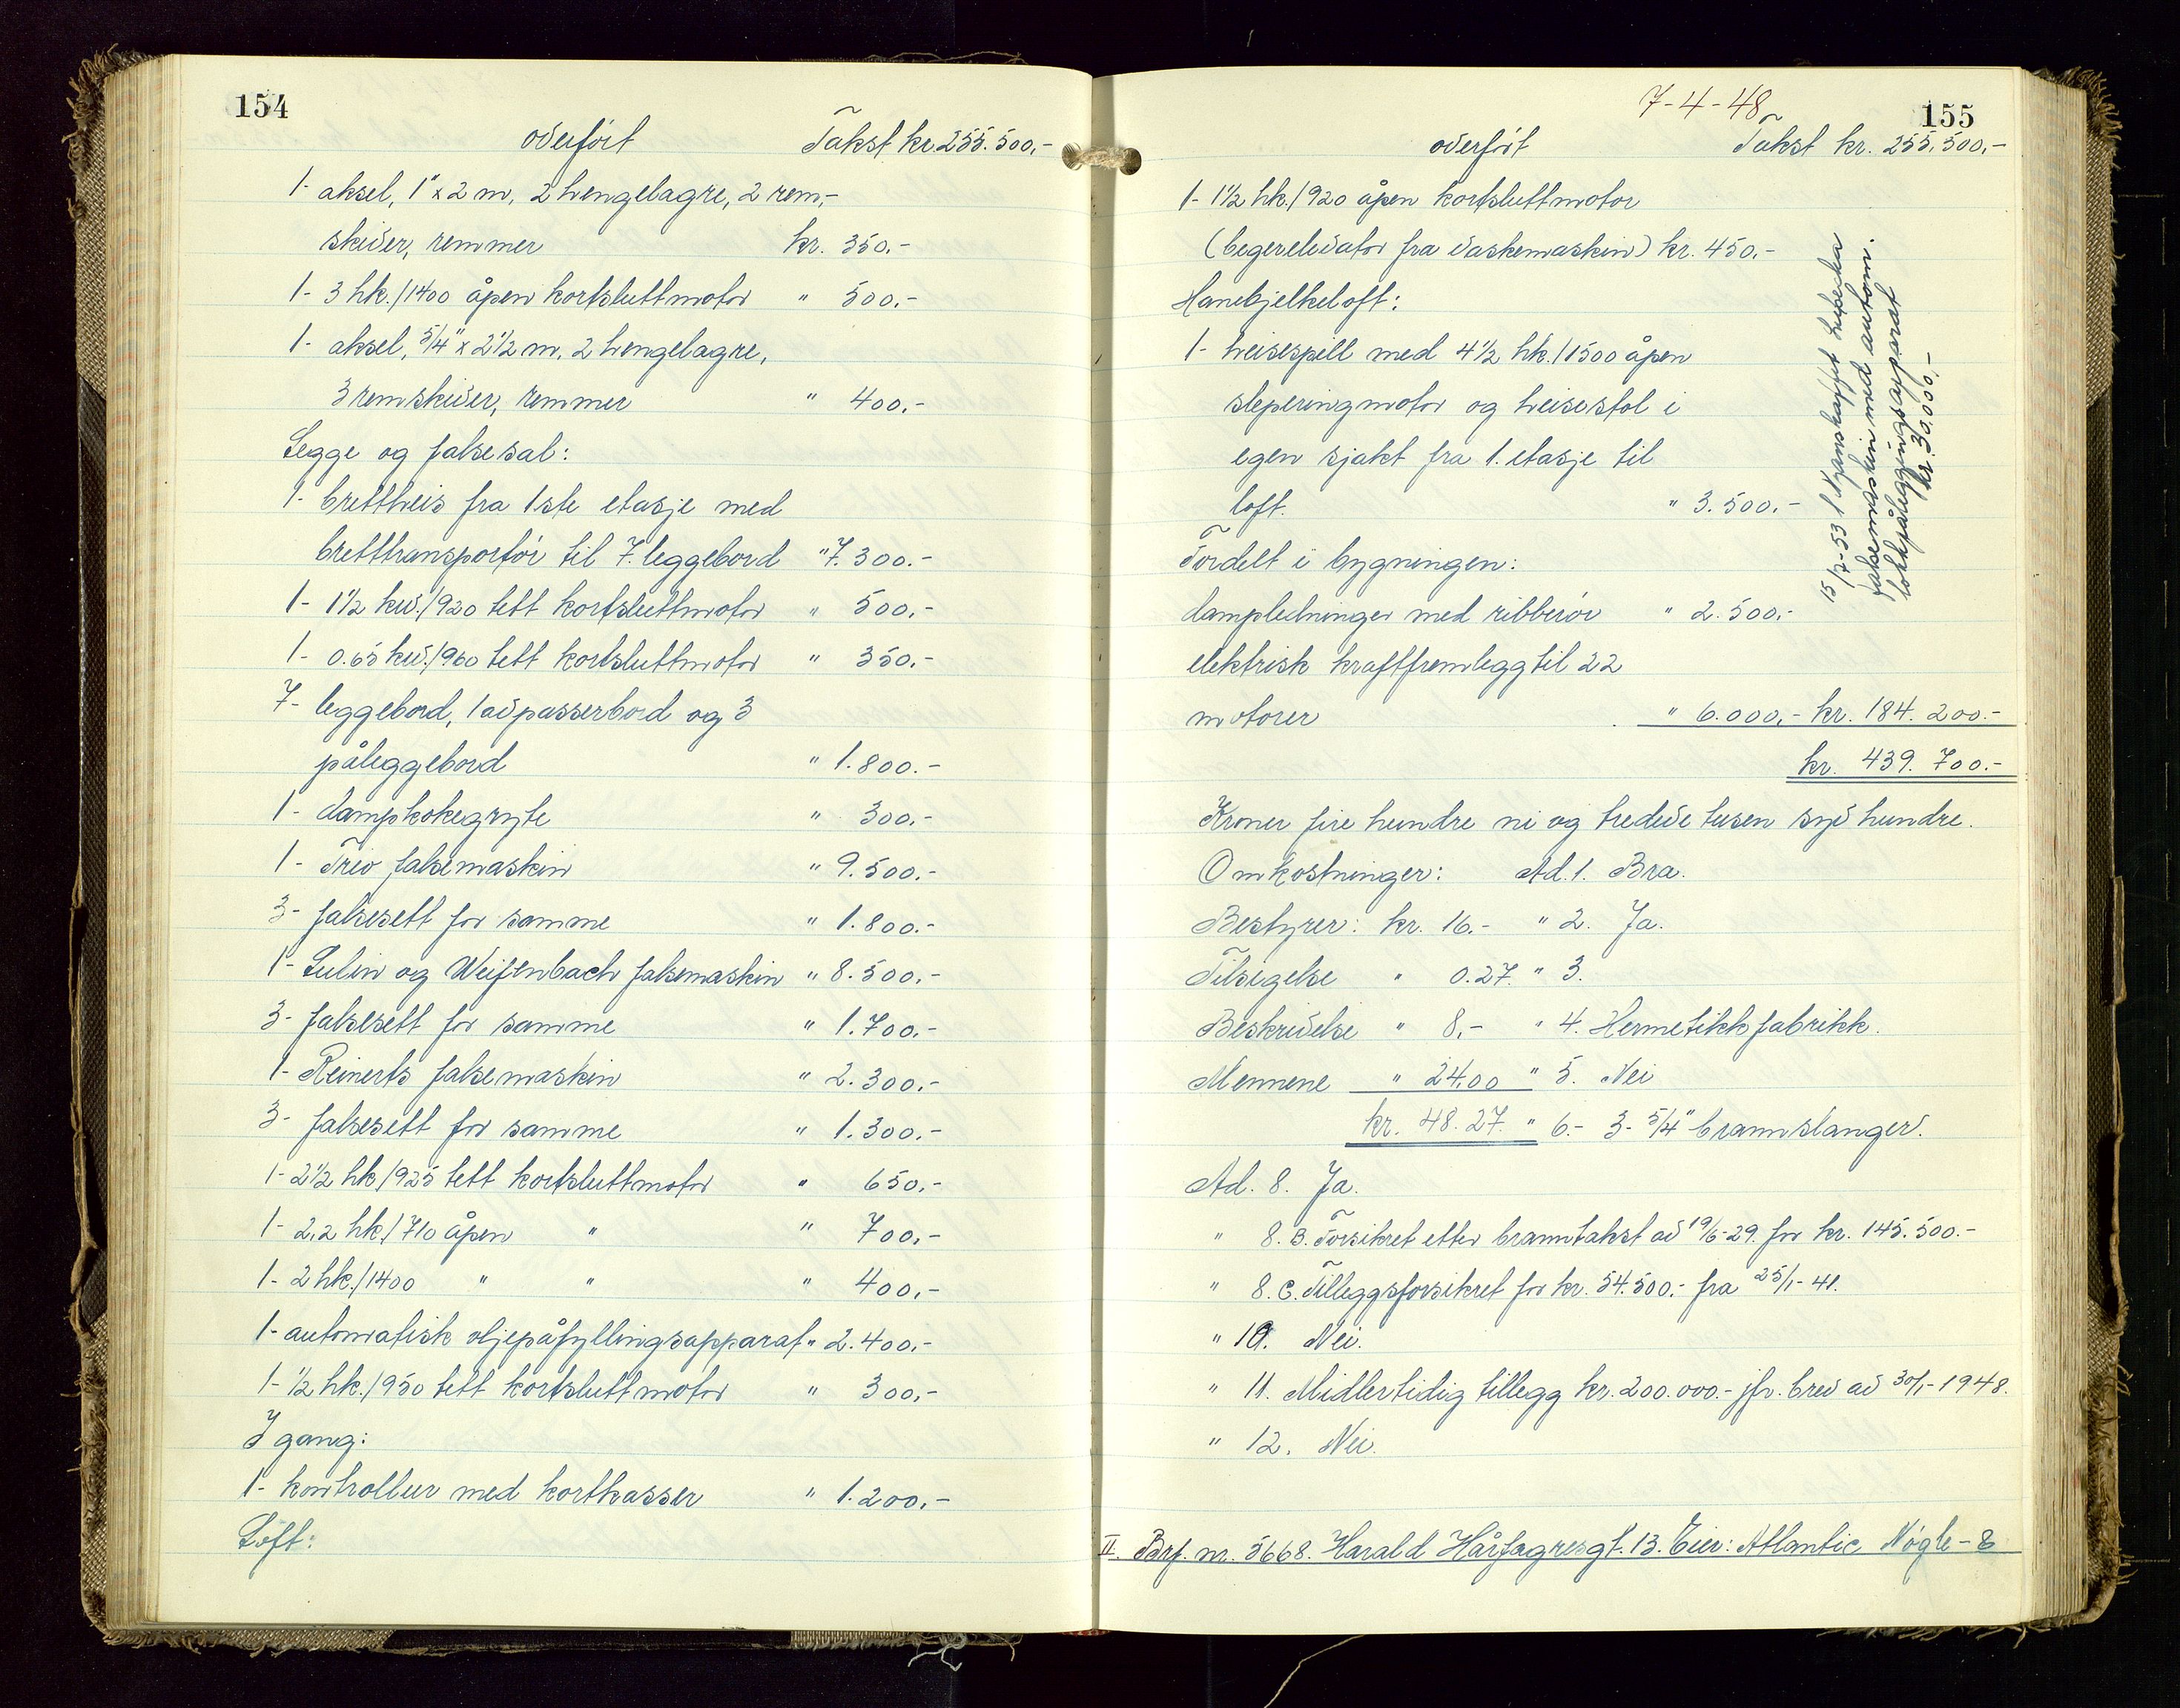 154
overført Takst kr. 255.500,-
1- aksel, 1" x 2 m, 2 hengelagre, 2 rem,-
skiver, remmer kr. 350.-
1- 3 hk./1400 åpen kortsluttmotor " 500.-
1- aksel, 5/4" x 2 1/2 m, 2 hengelagre,
3 remskiver, remmer " 400.-
Legge og falsesal:
1- brettheis fra 1ste etasje med
bretttransportør til 7. leggebord " 7.300.-
1- 1 1/2 kw./920 tett kortsluttmotor " 500.-
1- 0.65 kw./960 tett kortsluttmotor " 350.-
7- leggebord, 1 avpasserbord og 3
påleggebord " 1.800.-
1- dampkokegryte " 300.-
1- Trio falsemaskin " 9.500.-
3- falsesett for samme " 1.800.-
1- Lulin og Weifenbach falsemaskin " 8.500.-
3- falsesett for samme " 1.700.-
1- Reinerts falsemaskin " 2.300.-
3- falsesett for samme " 1.300.-
1- 2 1/2 hk/925 tett kortsluttmotor " 650.-
1- 2,2 hk./710 åpen " " 700,-
1- 2 hk./1400 " " " 400,-
1- automatisk oljepåfyllingsapparat " 2.400.-
1- 1/2 hk./950 tett kortsluttmotor " 300,-
I gang:
1- kontrollur med kortkasser " 1.200.-
Loft:
7-4-48
155
overført Takst kr. 255,500,-
1- 1 1/2 hk./920 åpen kortsluttmotor
(begerelevator fra vaskemaskin) kr. 450.-
Hanebjelkeloft:
1- heisespill med 4 1/2 hk./1500 åpen
sleperingmotor og heisestol i
egen sjakt fra 1. etasje til
loft. " 3.500.-
Fordelt i bygningen:
dampledninger med ribberør " 2.500.-
elektrisk kraftfremlegg til 22
motorer " 6.000,- kr. 184.200.-
kr. 439.700.-
15/2-53 1 Kjønstafft
falsemaskin med autom.
lokkpåleggingsapparat
kr. 30,000,-
Kroner fire hundre ni og tredve tusen syv hundre.
Omkostninger: Ad. 1. Bra.
Bestyrer: kr. 16.- " 2. Ja.
Tilsigelse " 0.27. " 3.
Beskrivelse " 8,- " 4. Hermetikkfabrikk.
Mennene " 24,00 " 5. Nei
kr. 48.27. " 6.- 3- 5/4" brannslanger.
Ad. 8. Ja.
" 8. B. Forsikret etter branntakst av 19/6-29. for kr. 145.500.-
" 8. C. Tilleggsforsikret for kr. 54.500.- fra 25/1-41.
" 10. Nei.
" 11. Midlertidig tillegg kr. 200.000.- jfr. brev av 30/1-1948.
" 12. Nei.
II. Brf. nr. 5668. Harald Hårfagresgt. 13. Eier: Atlantic Nøgle-8